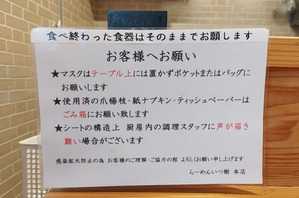 食べ終わった食器はそのままでお願します
お客様へお願い
★マスクはテーブル上には置かずポケットまたはバッグに
お願いします
★使用済の爪楊枝・紙ナプキン・ティッシュペーパーは
ごみ箱にお願い致します
★シートの構造上 厨房内の調理スタッフに声が届き
難い場合がございます
感染拡大防止の為 お客様のご理解・ご協力の程 よろしくお願い申し上げます
らーめんいつ樹 本店